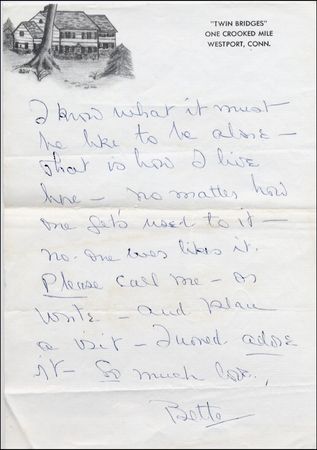 "TWIN BRIDGES"
ONE CROOKED MILE
WESTPORT, CONN.
I know what it must
be like to be alone —
that is how I live
here — no matter how
one gets used to it —
no one ever likes it.
Please call me — or
write — and plan
a visit — I would adore
it — So much love,
Bette